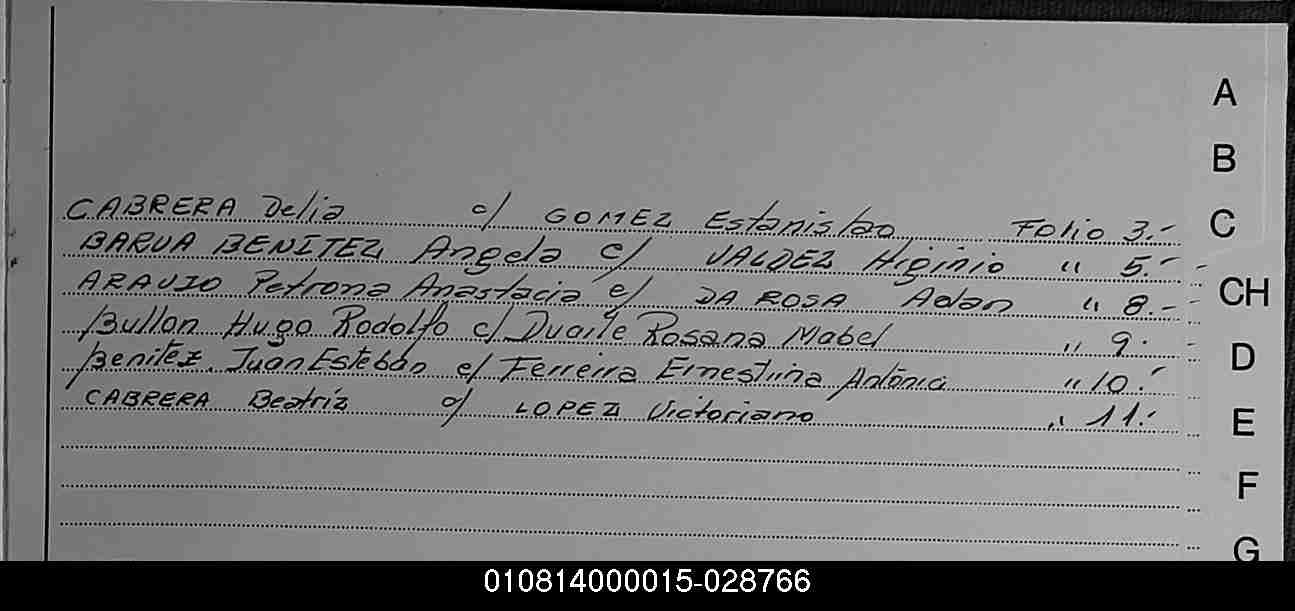 CABRERA Delia c/ GOMEZ Estanislao Folio 3.-
BARUA BENITEZ Angela c/ VALDEZ Higinio " 5.-
ARAUJO Petrona Anastacia c/ DA ROSA Adan " 8.-
Bullon Hugo Rodolfo c/ Duarte Rosana Mabel " 9.
Benitez, Juan Esteban c/ Ferreira Ernestina Antonia " 10.-
CABRERA Beatriz c/ LOPEZ Victoriano " 11.-
A
B
C
CH
D
E
F
G
010814000015-028766